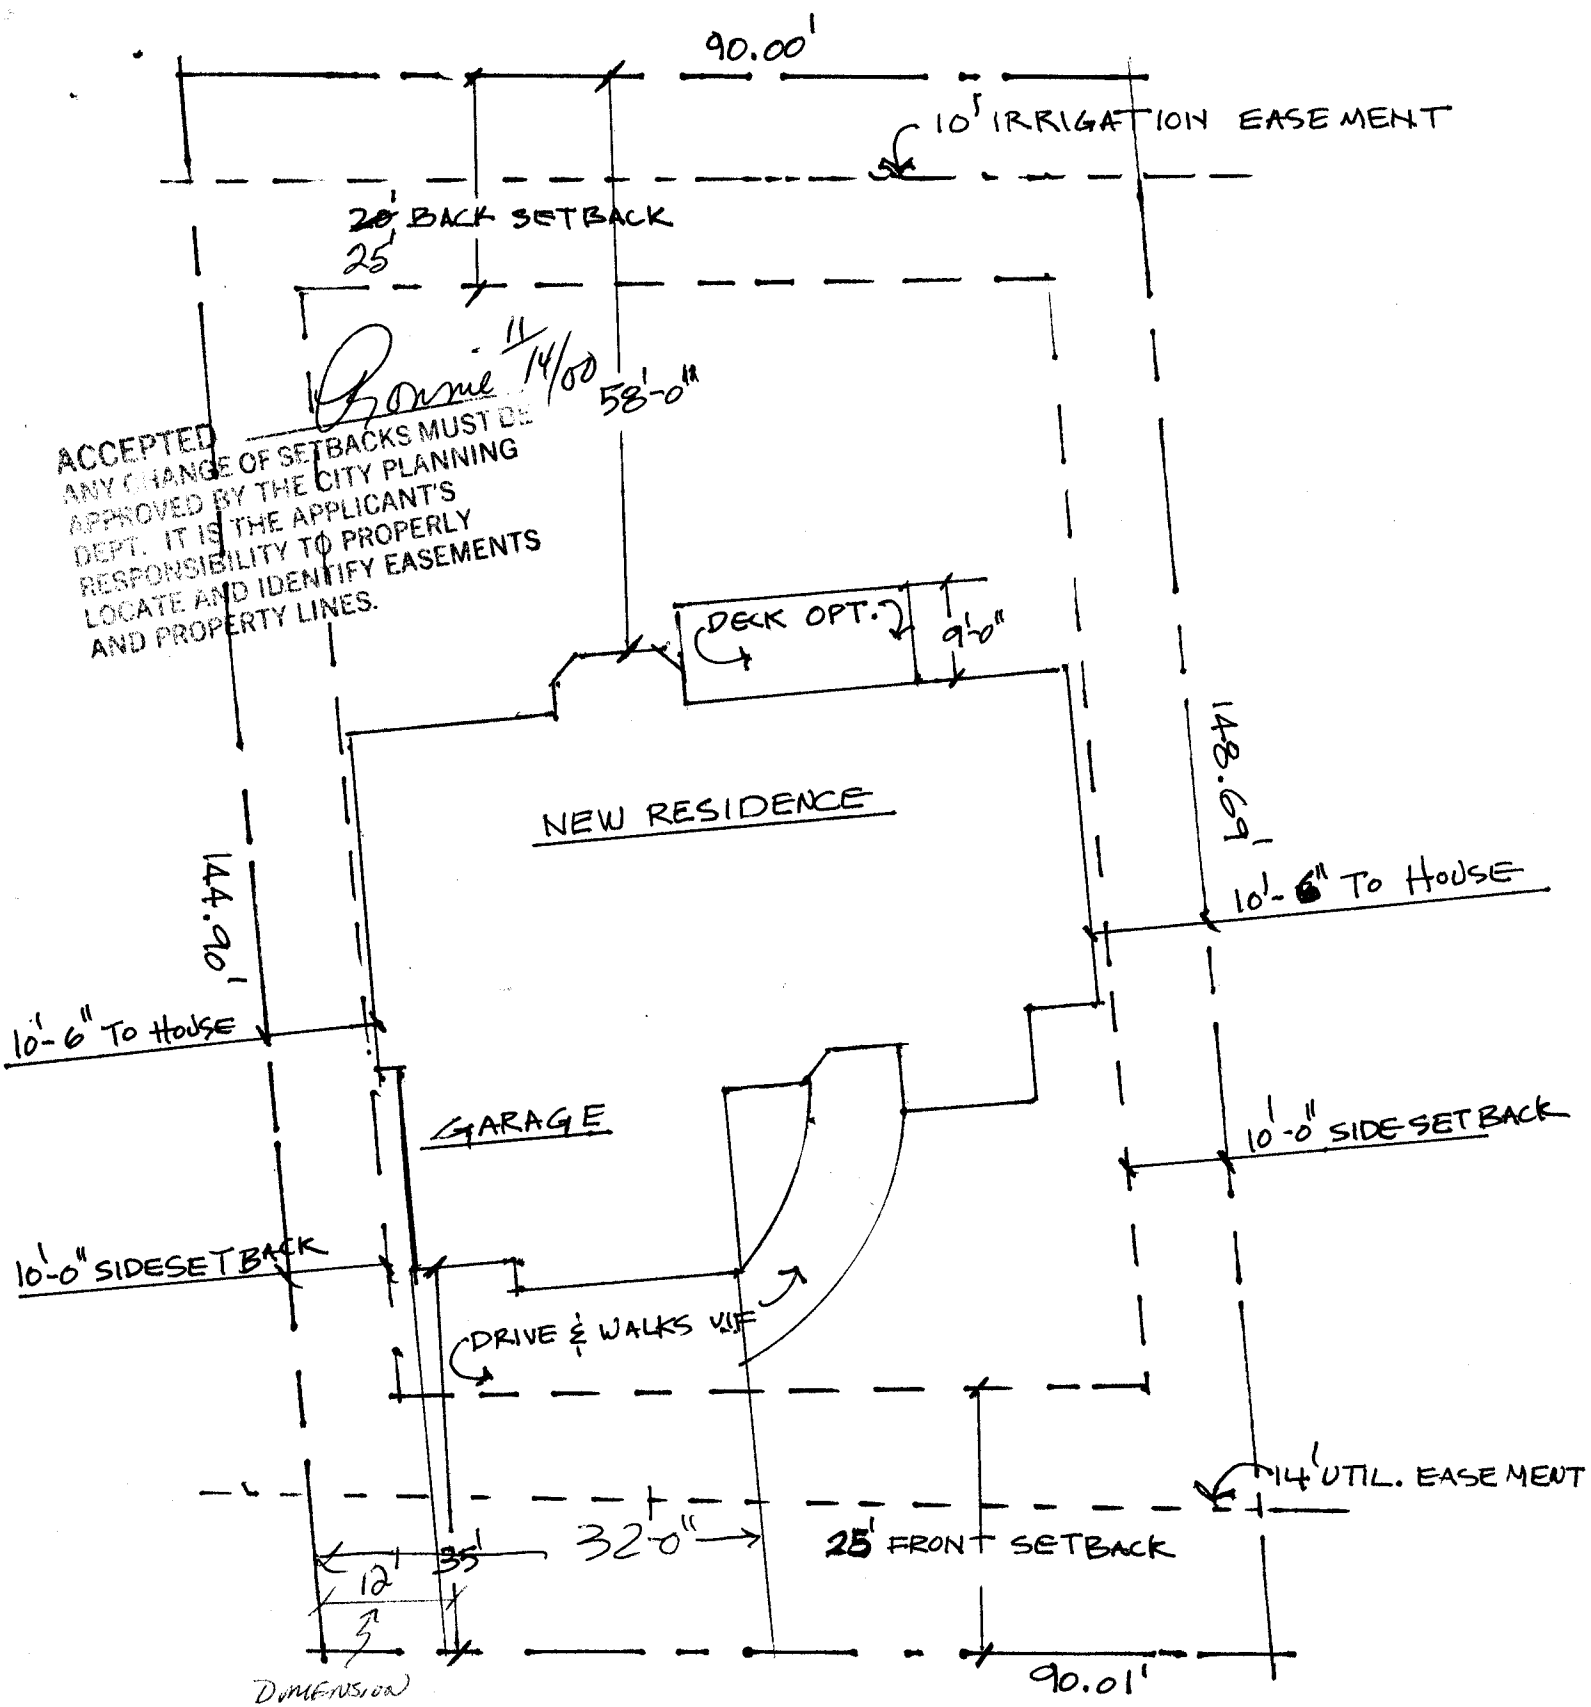 90.00'
10' IRRIGATION EASEMENT
20' BACK SETBACK
25'
Ronnie 11/14/00
58'-0"
ACCEPTED
ANY CHANGE OF SETBACKS MUST BE
APPROVED BY THE CITY PLANNING
DEPT. IT IS THE APPLICANT'S
RESPONSIBILITY TO PROPERLY
LOCATE AND IDENTIFY EASEMENTS
AND PROPERTY LINES.
DECK OPT.
9'-0"
148.69'
NEW RESIDENCE
144.90'
10'-6" TO HOUSE
10'-6" TO HOUSE
GARAGE
10'-0" SIDE SETBACK
10'-0" SIDESETBACK
DRIVE & WALKS VIF
14' UTIL. EASEMENT
32'-0"
25' FRONT SETBACK
35'
12'
DIMENSION
90.01'